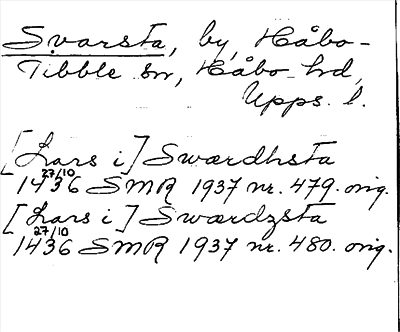 Svarsta, by, Håbo-
Tibble sn, Håbo hd,
Upps. l.
[Lars i] Swærdhsta
27/10
1436 SMR 1937 nr. 479. orig.
[Lars i] Swærdzsta
27/10
1436 SMR 1937 nr. 480. orig.